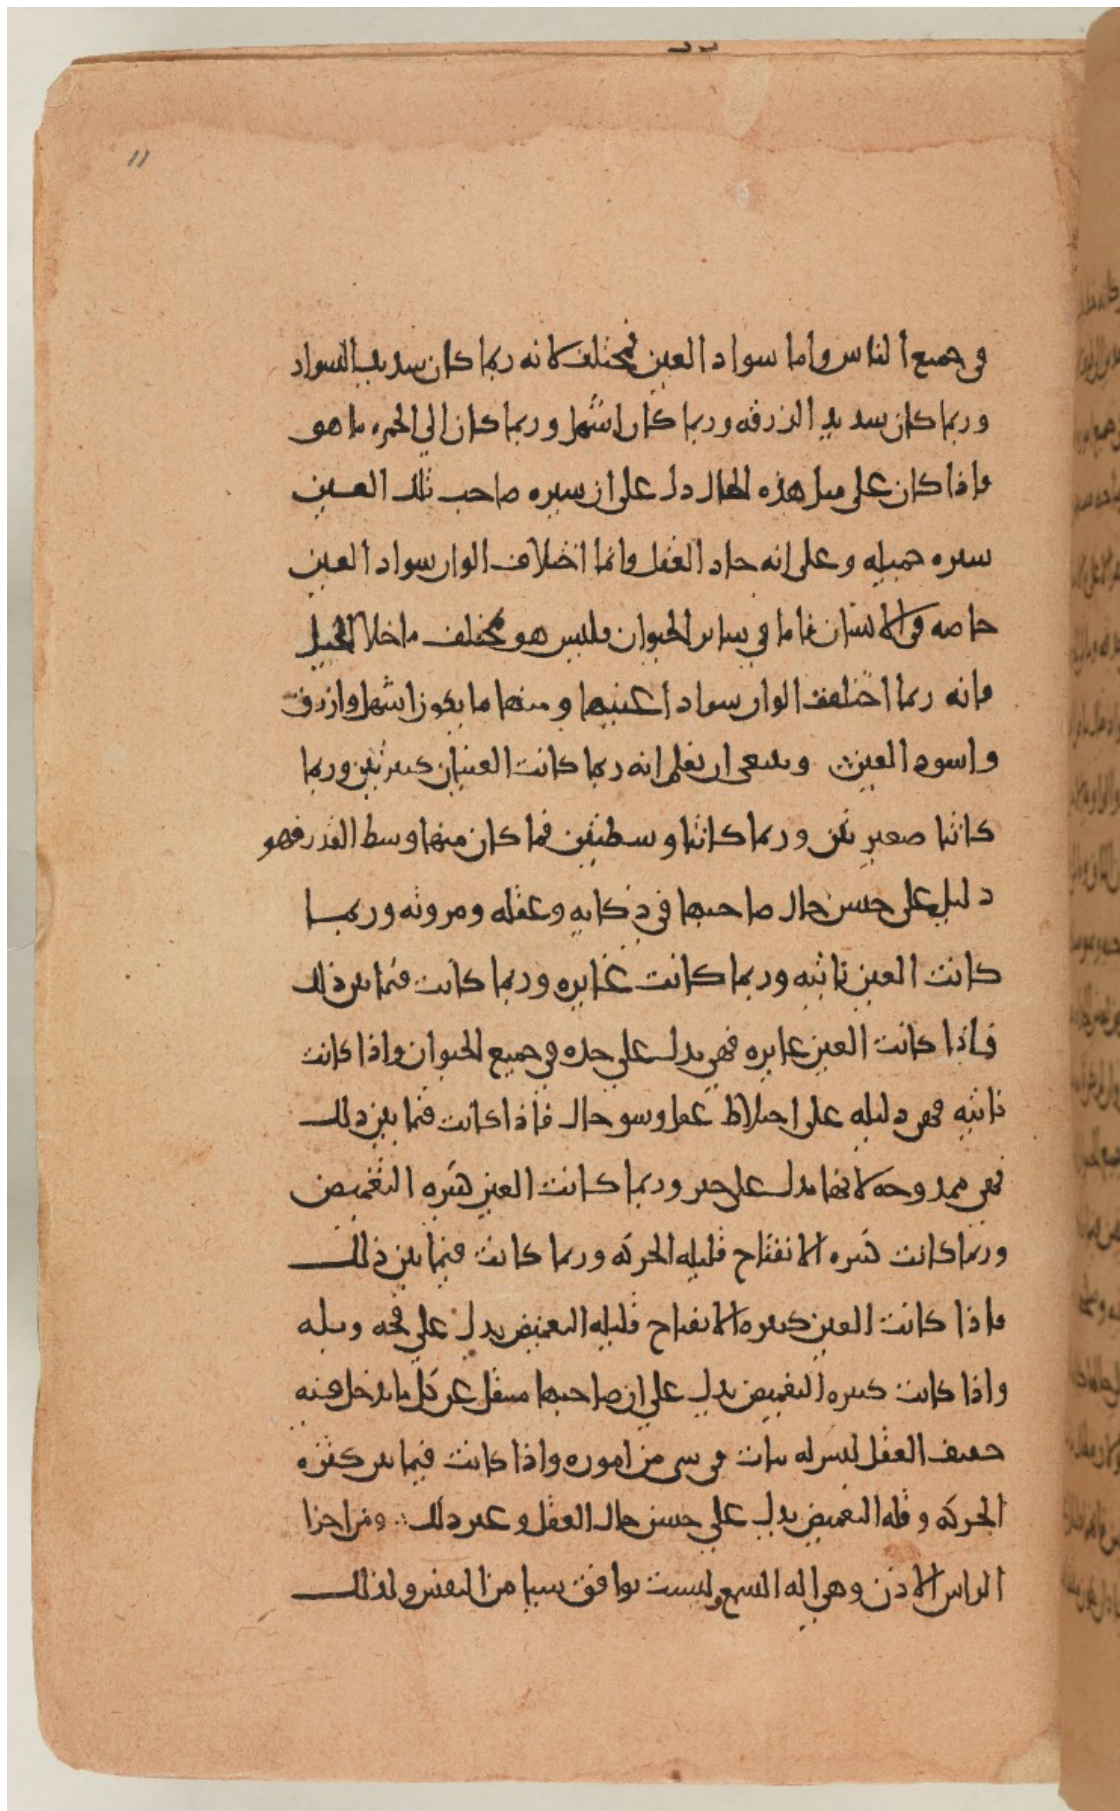 11
في جميع الناس واما سواد العين فمختلف لانه ربما كان شديد السواد
وربما كان شديد الزرقه وربما كان اشهل وربما كان الي الحمره ما هو
فاذا كان على مثل هذه الحال دل على ان سيره صاحب تلك العين
سيره جميله وعلى انه جاد العقل وانما اختلاف الوان سواد العين
خاصه في الانسان فاما في ساير الحيوان فليس هو مختلف ما خلا الخيل
فانه ربما اختلفت الوان سواد اعينها ومنها ما يكون اشهل وازرق
واسود العين وينبغي ان تعلم انه ربما كانت العينان كبيرتين وربما
كانتا صغيرتين وربما كانتا وسطتين فما كان منها وسط القدر فهو
دليل على حسن حال صاحبها في ذكايه وعقله ومروته وربما
كانت العين ناتيه وربما كانت غايره وربما كانت فيما بين ذلك
فاذا كانت العين غايره فهي تدل علي حده في جميع الحيوان واذا كانت
ناتيه فهي دليله على اختلاط عقل وسو حال فاذا كانت فيما بين ذلك
فهي ممدوحه لانها تدل على خير وربما كانت العين كثيره التغميض
وربما كانت كثيره الانفتاح قليله الحركه وربما كانت فيما بين ذلك
فاذا كانت العين كثيره الانفتاح قليله التغميض تدل علي قحه وبله
واذا كانت كثيره التغميض تدل علي ان صاحبها منتقل عن كل ما يدخل فيه
ضعيف العقل ليس له ثبات في شي من اموره واذا كانت فيما بين كثره
الحركه وقله التغميض تدل علي حسن حال العقل وغير ذلك ومن اجزا
الراس الاذن وهي اله السمع وليست توافق شيا من النفس ولذلك